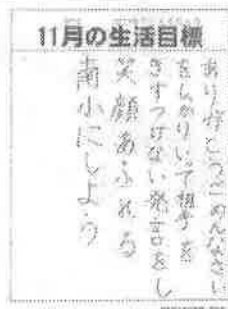 11月の生活目標
ありがとう、ごめんなさい
をしっかりいって相手を
きずつけない発言をし
笑顔あふれる
南小にしよう